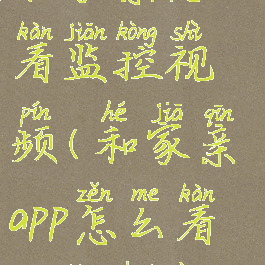 kàn jiān kòng shì
看监控视
pín hé jiā qīn
频(和家亲
zěn me kàn
app怎么看